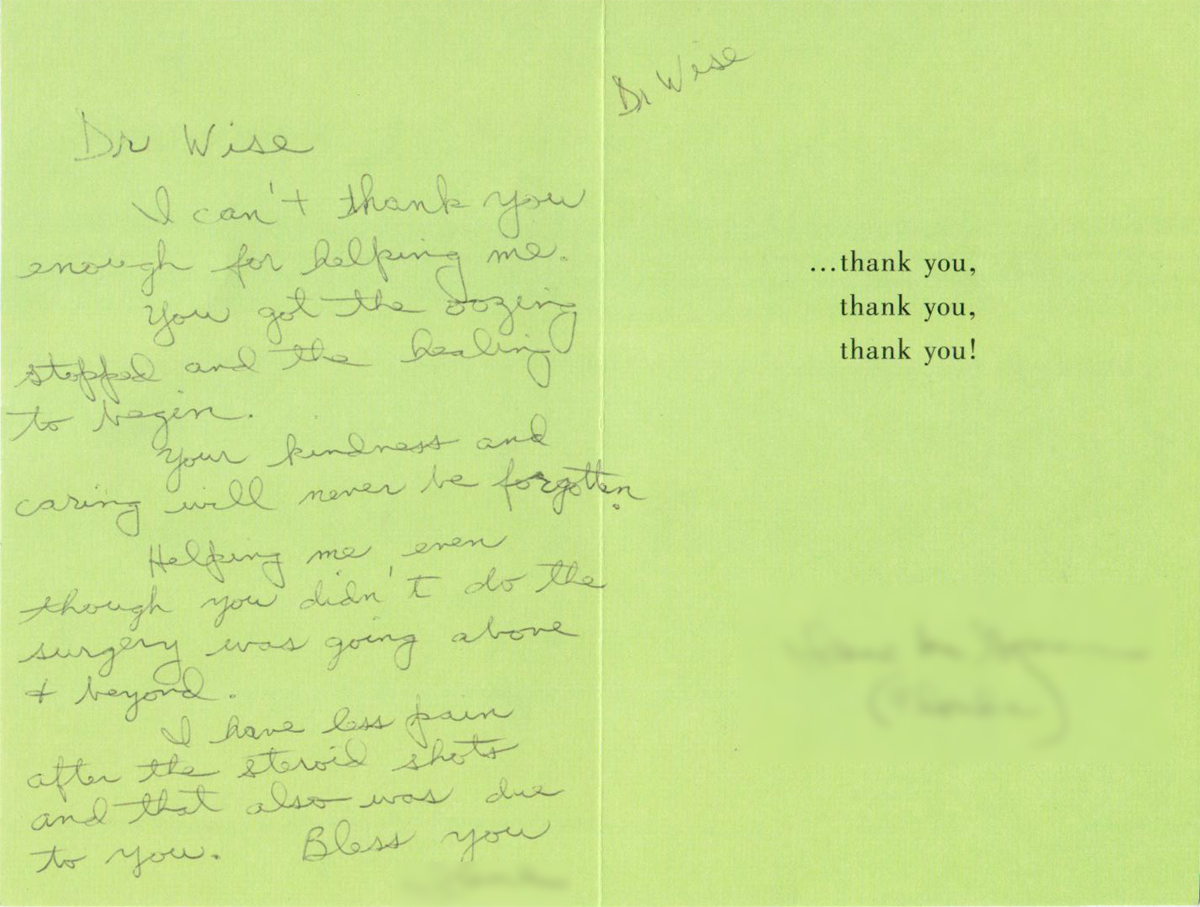 Dr Wise
I can't thank you
enough for helping me.
You got the oozing
stopped and the healing
to begin.
Your kindness and
caring will never be forgotten.
Helping me even
though you didn't do the
surgery was going above
+ beyond.
I have less pain
after the steroid shots
and that also was due
to you. Bless you
Dr Wise
...thank you,
thank you,
thank you!